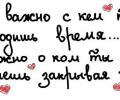 важно с кем
одишь время...
жно о ком ты
ешь закрывая